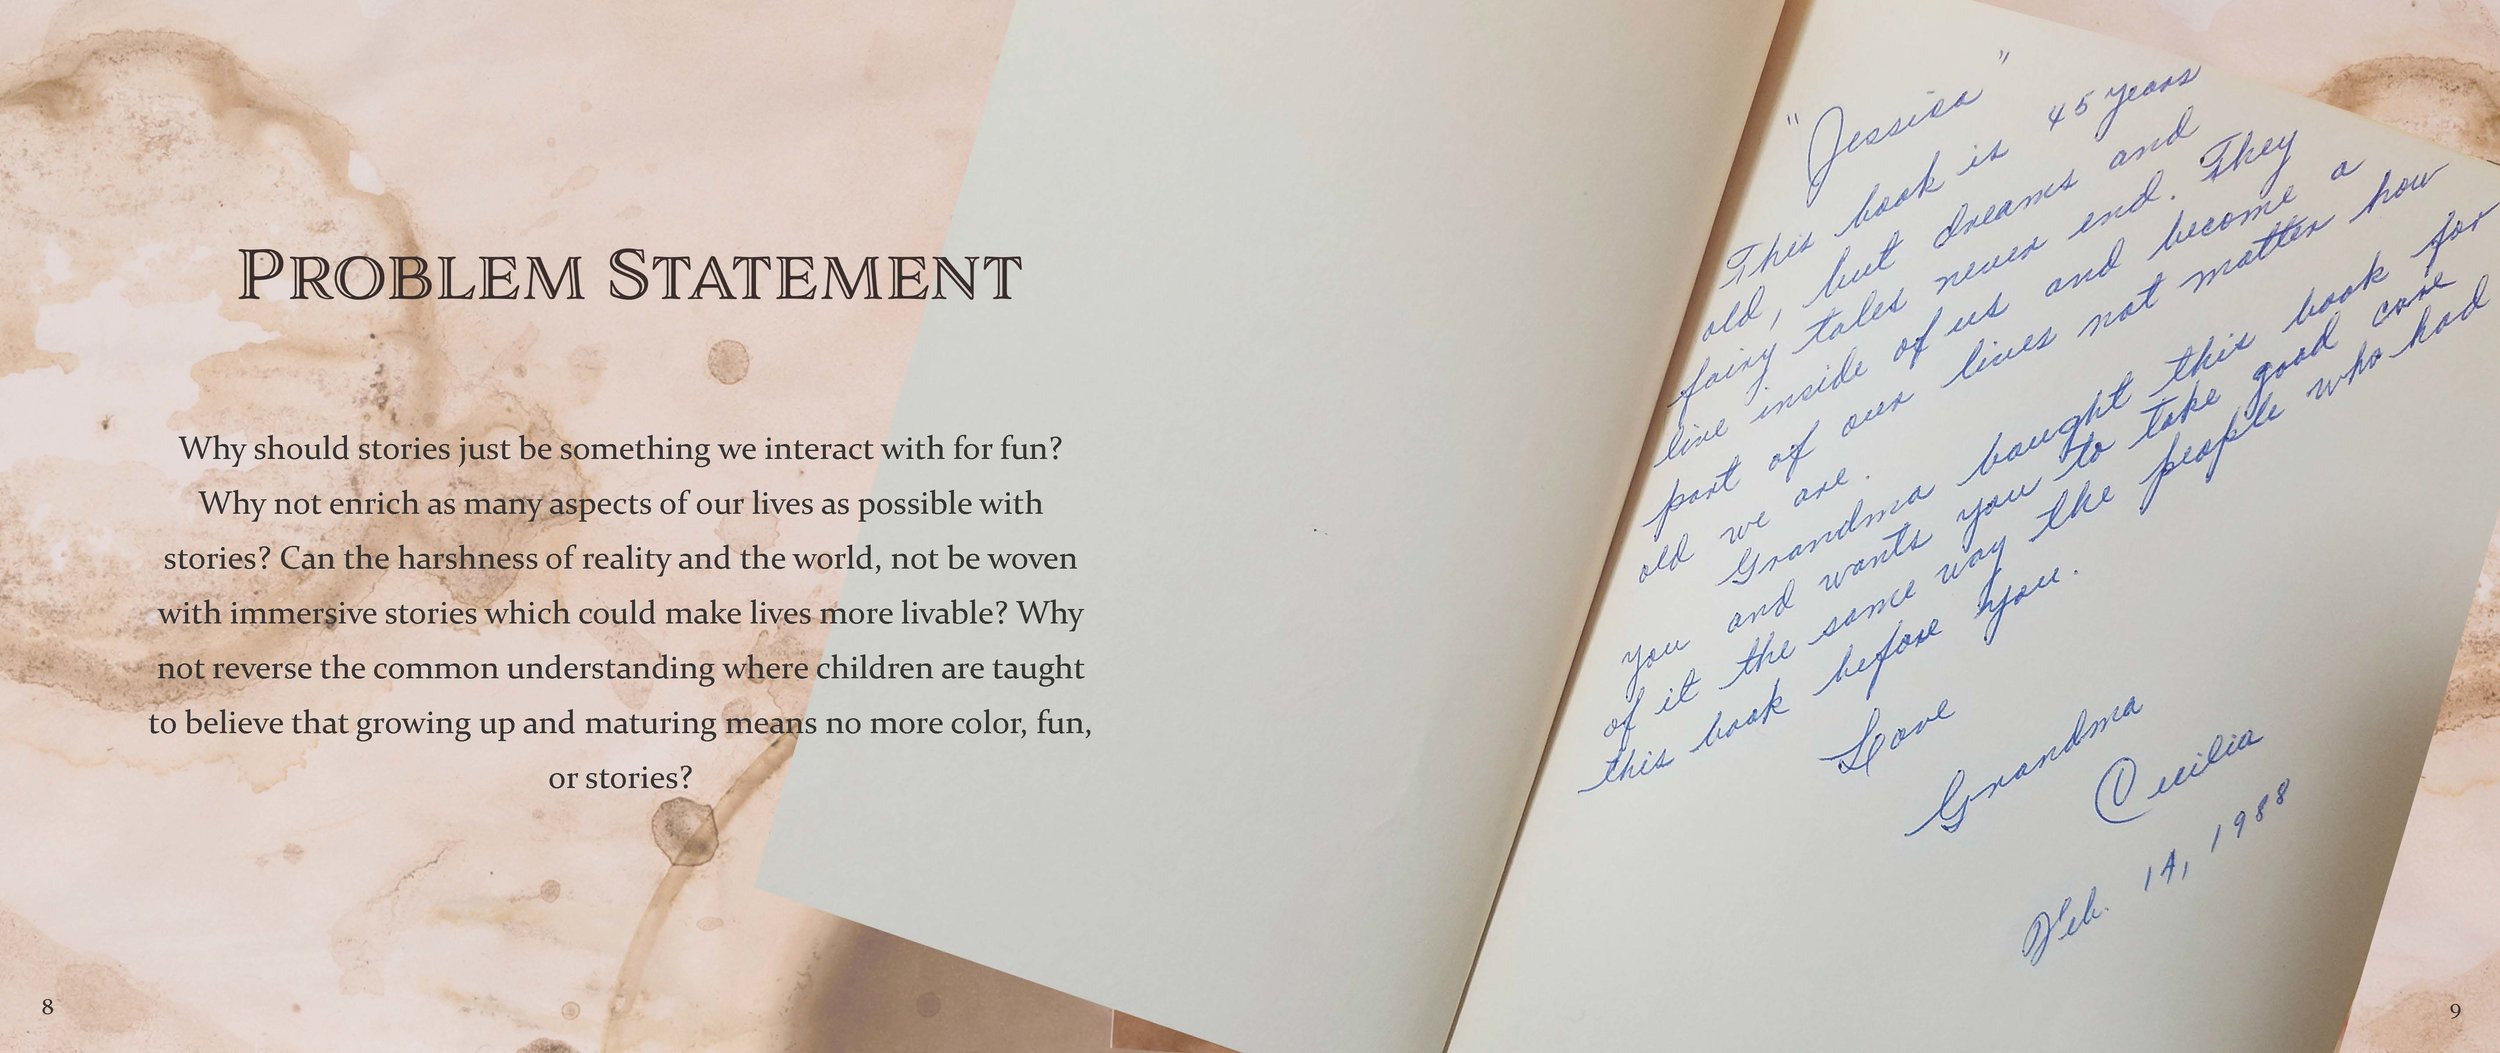 PROBLEM STATEMENT
Why should stories just be something we interact with for fun?
Why not enrich as many aspects of our lives as possible with
stories? Can the harshness of reality and the world, not be woven
with immersive stories which could make lives more livable? Why
not reverse the common understanding where children are taught
to believe that growing up and maturing means no more color, fun,
or stories?
8
"Jessica"
This book is 45 years
old, but dreams and
fairy tales never end. They
live inside of us and become a
part of our lives not matter how
old we are.
Grandma bought this book for
you and wants you to take good care
of it the same way the people who had
this book before you.
Love
Grandma
Cecilia
Feb. 14, 1988
9